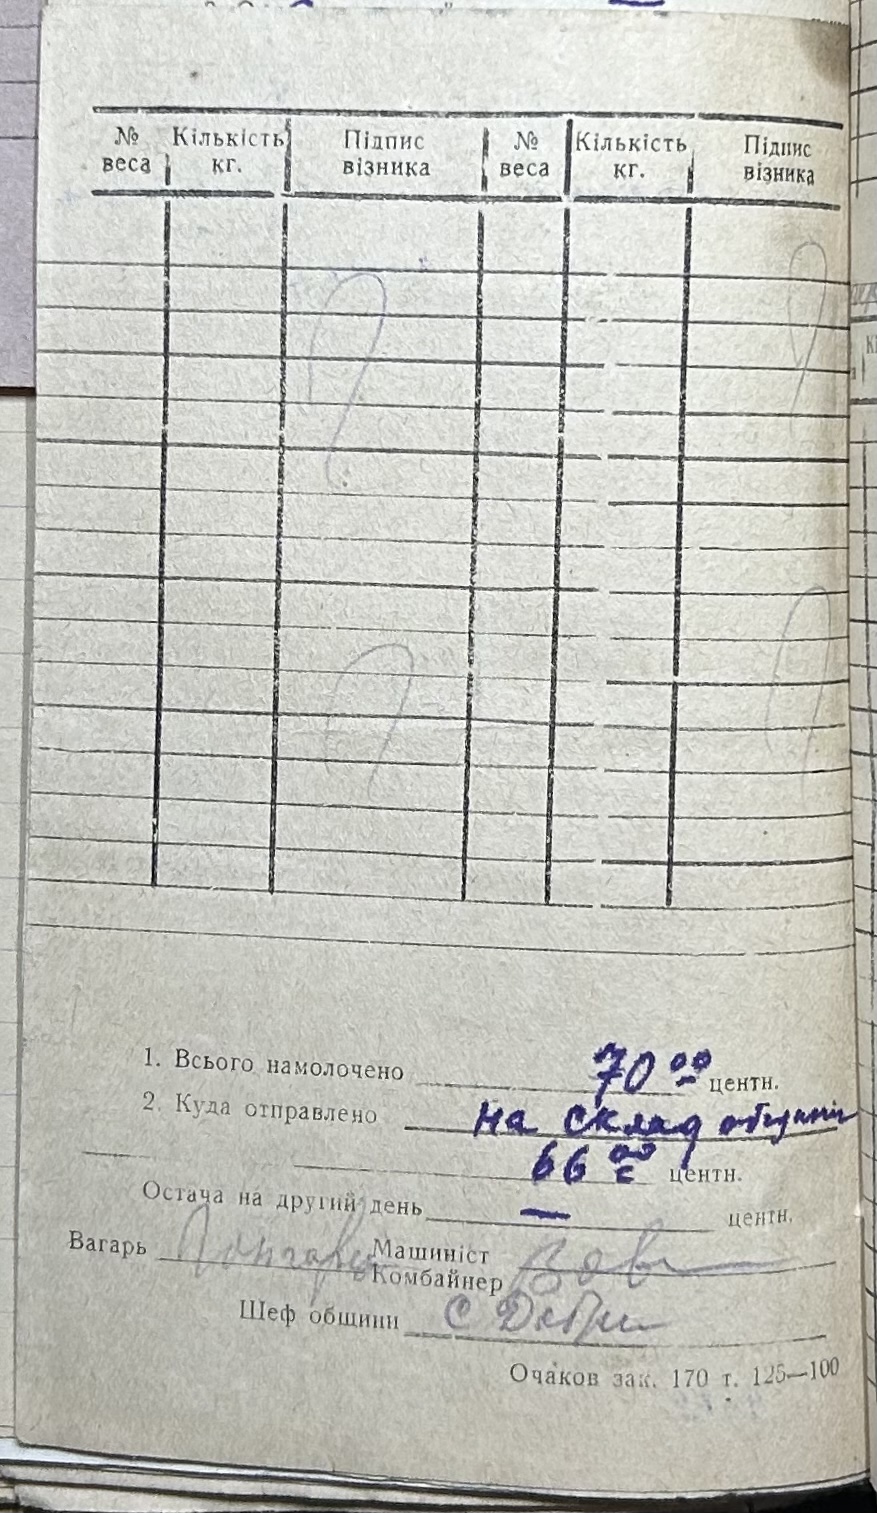 № веса Кількість кг. Підпис візника № веса Кількість кг. Підпис візника
1. Всього намолочено 70 00 центн.
2. Куда отправлено на склад общини
66 00 центн.
Остача на другий день — центн.
Вагарь Машиніст
Комбайнер
Шеф общини
Очаков зак. 170 т. 125—100